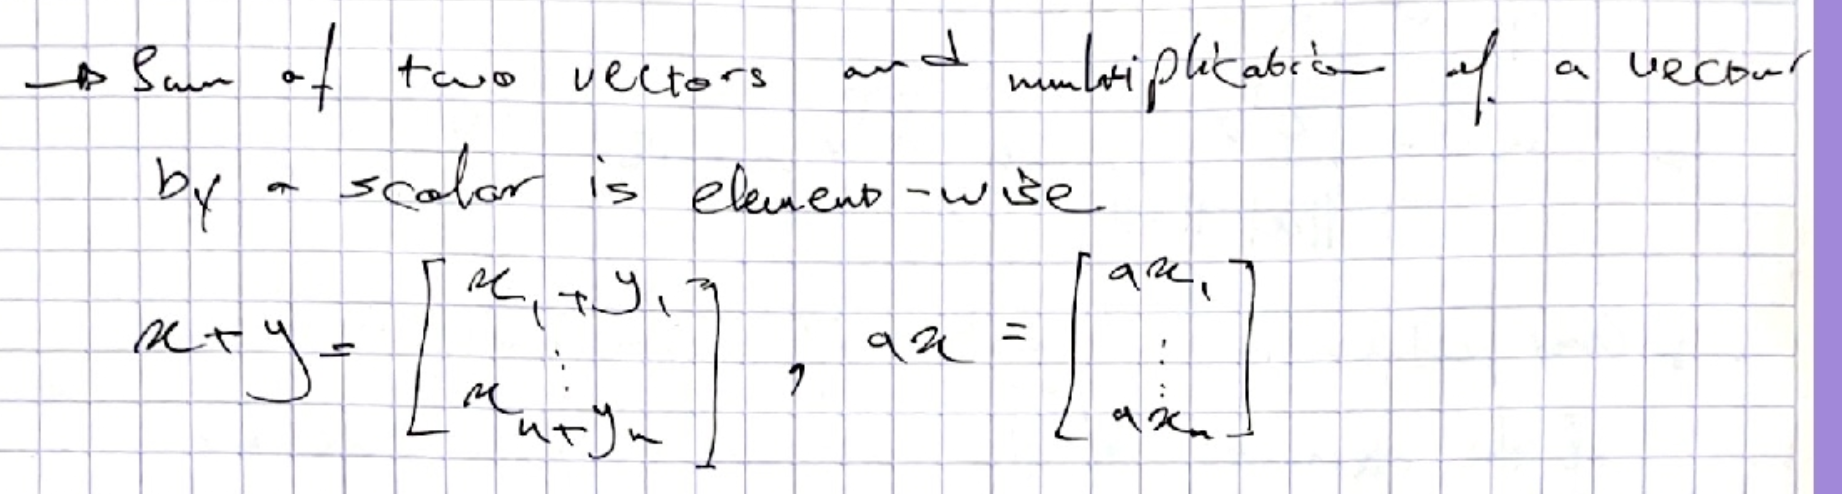 → Sum of two vectors and multiplication of a vector
by a scalar is element-wise
x+y = [x₁+y₁ ⋮ xₙ+yₙ], ax = [ax₁ ⋮ axₙ]